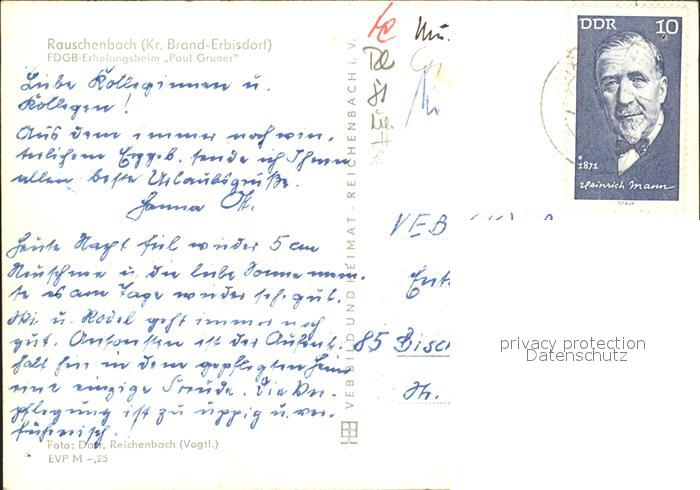 Rauschenbach (Kr. Brand-Erbisdorf)
FDGB-Erholungsheim „Paul Gruner"
Liebe Kolleginnen u.
Kollegen!
Aus dem immer noch win-
terlichem Erzgeb. sende ich Ihnen
allen beste Urlaubsgrüße.
Hanna
Heute Nacht fiel wieder 5 cm
Neuschnee u. die liebe Sonne mein-
te es am Tage wieder seh. gut.
Ski u. Rodel geht immer noch
gut. Ansonsten ist der Aufent-
halt hier in dem gepflegten Heim
eine einzige Freude. Die Ver-
pflegung ist zu üppig u. ver-
führerisch.
Foto: Darr, Reichenbach (Vogtl.)
EVP M –,25
VEB BILD UND HEIMAT · REICHENBACH i. V.
DDR 10
* 1871
Heinrich Mann
VEB
85 Bisch
Str.
privacy protection
Datenschutz